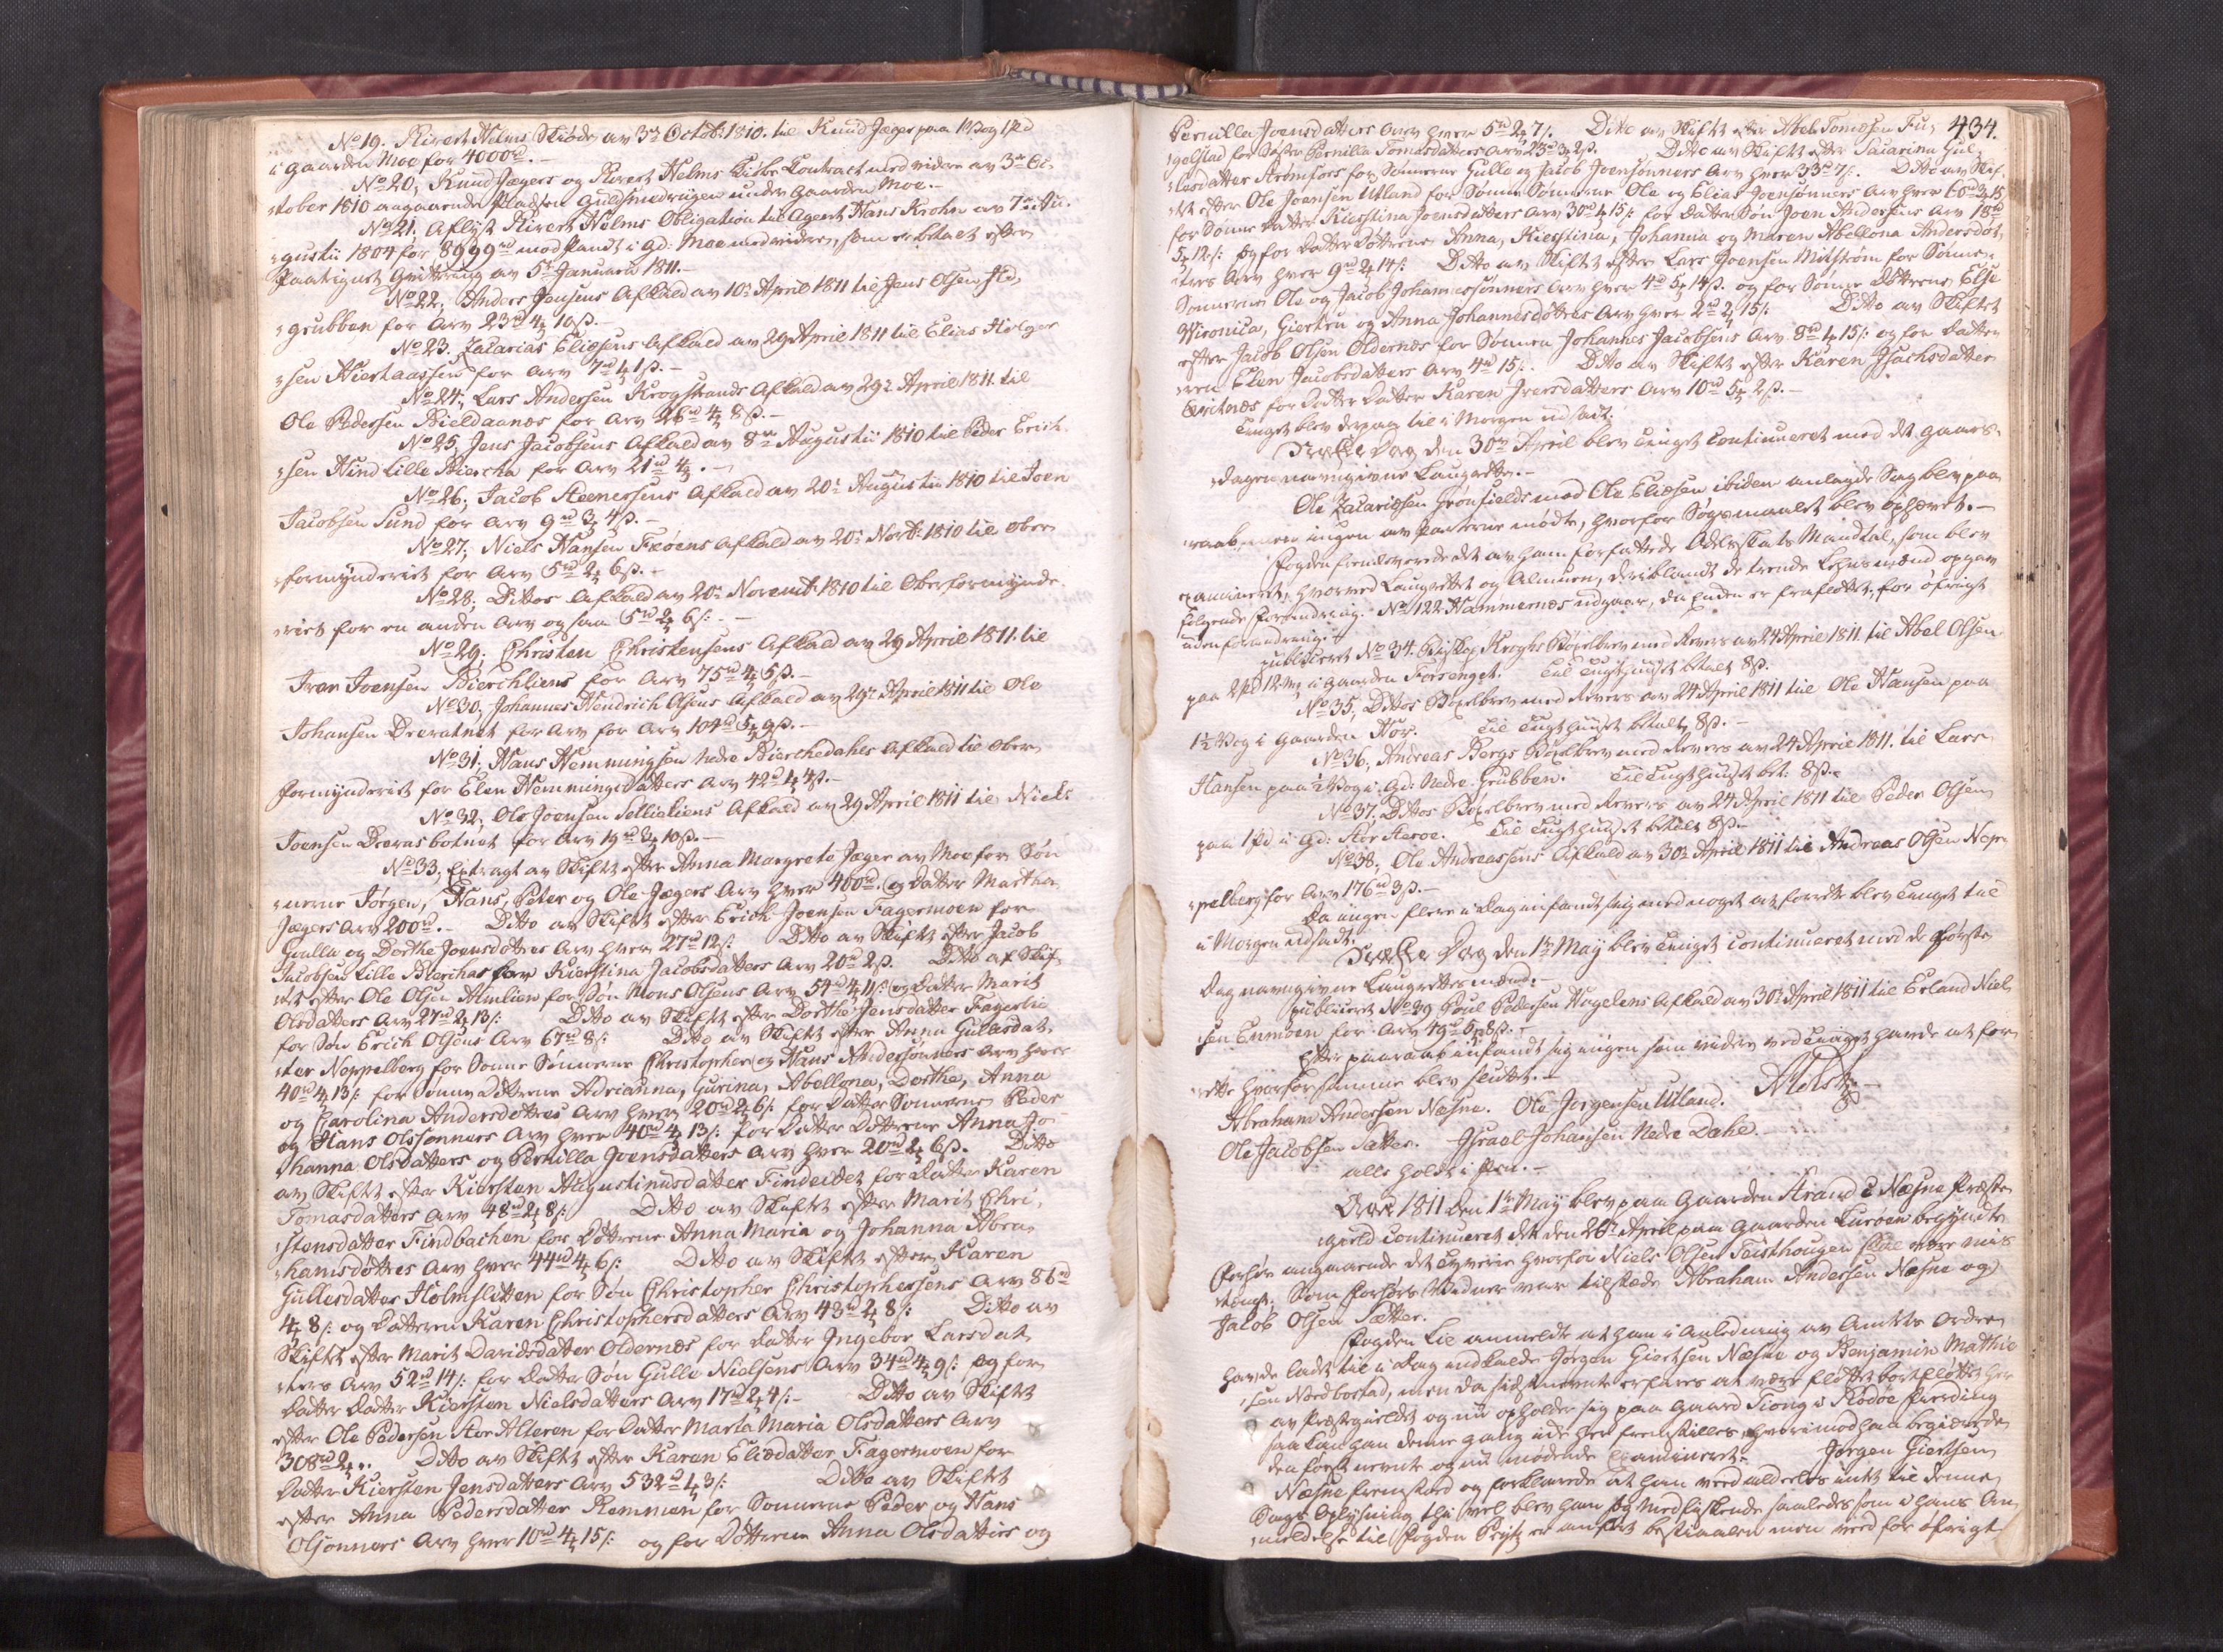 No 19. Rivert Helms Skiøde av 3de Octob: 1810. til Knud Jæger paa 1 Vog 1 Pd
i Gaarden Moe for 4000rd.-
No 20, Knud Jægers og Rivert Helms Kiøbe Contract med videre av 3de Oc-
tober 1810 angaaende Pladsen Guldsmedvigen under Gaarden Moe.-
No 21. Aflyst Rivert Helms Obligation til Agent Hans Krohn av 7de Au-
gustii 1804 for 8999rd mod Pandt i Gd: Moe med videre, som er betalt efter
Paategnet Qvittering av 5te Januarii 1811.-
No 22, Anders Jensens Afkald av 10de April 1811 til Jens Olsen
Grubben for Arv 23rd 4 10ß.-
No 23. Zacarias Eliæsens Afkald av 29 April 1811 til Elias Holger
sen for Arv 7rd 4 1ß.-
No 24, Lars Andersen Krogstrands Afkald av 29de April 1811. til
Ole Pedersen Bieldaanæs for Arv 26rd 4 8ß.-
No 25, Jens Jacobsens Afkald av 8de Augustii 1810 til Peder Erich-
sen Hind Lille Biercha for Arv 21rd 4.-
No 26, Jacob Steenersens Afkald av 20de Augustii 1810 til Joen
Jacobsen Sund for Arv 9rd 3 4ß.-
No 27, Niels Hansen Afkald av 20de Novb: 1810 til Ober
formynderiet for Arv 5rd 2 6ß.-
No 28, Dittos Afkald av 20de Novemb: 1810 til Oberformynde
riet for en anden Arv ogsaa 5rd 2 6ß.-
No 29. Christen Christensens Afkald av 29 April 1811. til
Iver Joensen Bierchliens for Arv 75rd 4 5ß.-
No 30, Johannes Hendrich Olsens Afkald av 29de April 1811 til Ole
Johansen Drevatnet for Arv for Arv 104rd 5 9ß.-
No 31, Hans Hemmingsen Nedre Bierchedahls Afkald til Ober
formynderiet for Elen Hemmings Datters Arv 42rd 1 4ß.-
No 32, Ole Joensen Selliæliens Afkald av 29 April 1811 til Niels
Joensen Drevasbotnet for Arv 19rd 3 10ß.-
No 33, Extragt av Skiftet efter Anna Margrete Jæger av Moe for Søn
nerne Jørgen, Hans, Peter og Ole Jægers Arv hver 400rd. og Datter Martha
Jægers Arv 200rd.- Ditto av Skiftet efter Erich Joensen Fagermoen for
Gulla og Dorthe Joensdøttres Arv hver 27rd 12ß. Ditto av Skiftet efter Jacob
Jacobsen Lille Bierchas for Kierstina Jacobsdatters Arv 20rd 2ß. Ditto af Skif
tet efter Ole Olsen Almlien for Søn Mons Olsens Arv 54rd 4 11ß. og Datter Marit
Olsdatters Arv 27rd 2 13ß. Ditto av Skiftet efter Dorthe Jensdatter Fagerlie
for Søn Erich Olsens Arv 67rd 8ß. Ditto av Skiftet efter Anna Gulesdat-
ter Neppelberg for Sønne Sønnerne Christopher og Hans Andersønners Arv hver
40rd 4 13ß. for Sønne Døttrene Adrianna, Gurina, Abellona, Dorthe, Anna
og Carolina Andersdøttres Arv hver 20rd 2 6ß. for Datter Sønnerne Peder
og Hans Olssønners Arv hver 40rd 4 13ß. for Datter Døttrene Anna Jo
hanna Olsdatters og Pernilla Joensdatters Arv hver 20rd 2 6ß. Ditto
av Skiftet efter Kiersten Augustinusdatter Findeidet for Datter Karen
Tomasdatters Arv 48rd 2 8ß. Ditto av Skiftet efter Marit Chri-
stensdatter Findbachen for Døttrene Anna Maria og Johanna Abra-
hamsdøttres Arv hver 44rd 4 6ß. Ditto av Skiftet efter Karen
Gullesdatter Holmslitten for Søn Christopher Christophersens Arv 86rd
4 8ß. og Datteren Karen Christophersdatters Arv 43rd 2 8ß. Ditto av
Skiftet efter Marit Davidsdatter Oldernæs for Datter Ingebor Larsdat
ters Arv 52rd 14ß. for Datter Søn Gulle Nielsens Arv 34rd 4 9ß. og for
Datter Datter Kiersten Nielsdatters Arv 17rd 2 4ß.- Ditto av Skiftet
efter Ole Pedersen Stor Alteren for Datter Marta Maria Olsdatters Arv
308rd 2.. Ditto av Skiftet efter Karen Eliædatter Fagermoen for
Datter Kiersten Jensdatters Arv 532rd 1 3ß. Ditto av Skiftet
efter Anna Pedersdatter Remmen for Sønnerne Peder og Hans
Olsønners Arv hver 10rd 4 15ß. og for Døttrene Anna Olsdatters og
434.
Pernilla Joensdatters Arv hver 5rd 2 7ß. Ditto av Skiftet efter Abel Tomæsen Fu-
gelstad for Søster Pernilla Tomasdatters Arv 23rd 3 2ß. Ditto av Skiftet efter Sacarina Gul
lesdatter Strømfors for Sønnerne Gulle og Jacob Joensønners Arv hver 33rd 7ß. Ditto av Skif-
tet efter Ole Joensen Utland for Sønne Sønnerne Ole og Elias Joensønners Arv hver 60rd 3 15
for Sønne Datter Kierstina Joensdatters Arv 30rd 1 15ß. for Datter Søn Joen Andersens Arv 18rd
5 12ß. og for Datter Døttrene Anna, Kierstina, Johanna og Maren Abellona Andersdøt
ters Arv hver 9rd 2 14ß. Ditto av Skiftet efter Lars Joensen Milstrøm for Sønne
Sønnerne Ole og Jacob Johannessønners Arv hver 4rd 5 14ß. og for Sønne Døttrene Else
Wironica, Giertru og Anna Johannesdøttres Arv hver 2rd 2 15ß. Ditto av Skiftet
efter Jacob Olsen Oldernæs for Sønnen Johannes Jacobsens Arv 8rd 1 15ß. og for Datte
ren Elen Jacobsdatters Arv 4rd 15ß. Ditto av Skiftet efter Karen Isachsdatter
for Datter Datter Karen Iversdatters Arv 10rd 5 2ß.-
Tinget blev derpaa til i Morgen udsadt.
Tredie Dag den 30de April blev Tinget Continueret med det Gaars-
dagen navngivne Laugrette.-
Ole Zacariæsen Grønfields mod Ole Eliæsen ibidem anlagde Sag blev paa
raabt, men ingen av Parterne mødte, hvorfor Søgsmaalet blev ophævet.-
Fogden fremleverede det av ham forfattede Odelsskats Mandtal, som blev
examineret, hvorved Laugrettet og Almuen, deriblandt de trende Lehnsmænd opgav
følgende Forandring. No 122 Hammernæs udgaar, da Enden er frafløttet, for øfrigt
uden forandring.
Publiceret No 34. Biskop Kroghs Bøxelbrev med Revers av 24 April 1811. til Abel Olsen
paa 2 Pd 12 m i Gaarden Forsenget. Til Tugthuuset betalt 8ß.
No 35, Dittos Bøxelbrev med Revers av 24 April 1811 til Ole Hansen paa
1½ Vog i Gaarden Hov. Til Tugthuuset betalt 8ß.-
No 36, Andreas Bergs Bøxelbrev med Revers av 24 April 1811. til Lars
Hansen paa ½ Vog i Gd: Nedre Grubben. Til Tugthuuset bet: 8ß.-
No 37. Dittos Bøxelbrev med Revers av 24 April 1811 til Peder Olsen
paa 1 Pd i Gd: Til Tugthuuset betalt 8ß.-
No 38, Ole Andreassens Afkald av 30de April 1811 til Andreas Olsen Nep-
pelberg for Arv 176rd 3ß.-
Da ingen flere i Dag indfandt sig med noget at forrette blev Tinget til
i Morgen udsadt.
Fierde Dag den 1te May blev Tinget Continueret med de første
Dag navngivne Laugrettesmænd.-
Publiceret No 39 Poul Pedersen Hagelens Afkald av 30te April 1811 til Erland Niel
sen Enmoen for Arv 19rd 5 8ß.-
Efter paaraab indfandt sig ingen som videre ved Tinget havde at for
rette hvorfor samme blev sluttet.-
Abraham Andersen Næsne. Ole Jørgensen Utland.
Ole Jacobsen Sætter. Israel Johansen Nedre Dahl.-
alle holdt i Pen.-
Aar 1811 den 1te May blev paa Gaarden Strand i Næsne Præste
gield Continueret det den 26de April paa Gaarden Lurøen begyndte
Forhør angaaende det Tyverie hvorfor Niels Olsen Teisthougen skal være mis
tænkt. Som Forhørs Vidner var tilstede Abraham Andersen Næsne og
Jacob Olsen Sætter.
Fogden Lie anmeldte at han i Anledning av Amtets Ordre
havde ladet til i Dag indkalde Jørgen Giertsen Næsne og Benjamin Mathiæ
sen Nordbostad, men da sidstnevnte erfares at være fløttet bortfløttet her
av Præstegieldet og nu opholder sig paa Gaard Tiong i Rødøe Fierding
saa kan han denne gang ikke her fremstilles, hvorimod han begiærede
den først nevnte og nu mødende Examineret. Jørgen Giertsen
Næsne fremstod og forklarede at han veed aldeles intet til denne
Sags Oplysning thi vel blev han sagt saaledes som i hans An
meldelse til Fogden er anført bestiaalen men veed for øfrigt